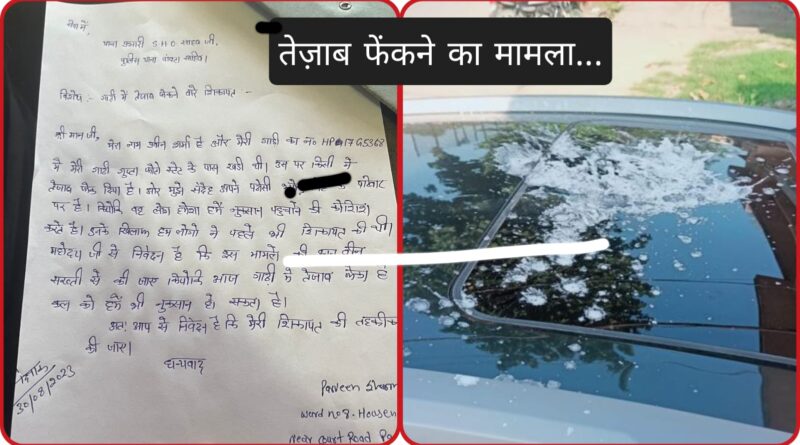 तेज़ाब फेंकने का मामला...
सेवा में,
थाना प्रभारी S H O साहब जी,
पुलिस थाना पांवटा साहिब।
विषय :- गाडी में तेजाब फेंकने बारे शिकायत -
श्री मान जी,
मेरा नाम प्रवीन शर्मा है और मेरी गाडी का no HP17G5368
है मेरी गाडी गुप्ता के पास खडी थी। उस पर किसी ने
तेजाब फेंक दिया है। और मुझे संदेह अपने पडोसी के परिवार
पर है। क्योंकि वह लोग हमेशा हमें नुकसान पहुचाने की कोशिश
करते है। इनके खिलाफ हम लोगो ने पहले भी शिकायत की थी।
महोदय जी से निवेदन है कि इस मामले की
सख्ती से की जाए क्योकि आज गाडी में तेजाब फेंका है
कल को हमें भी नुकसान हो सकता है।
अतः आप से निवेदन है कि मेरी शिकायत की तहकीकात
की जाए।
धन्यवाद
दिनांक
30/08/2023
Parveen Sharm
Ward no 8. Housen
Near Court Road Pa